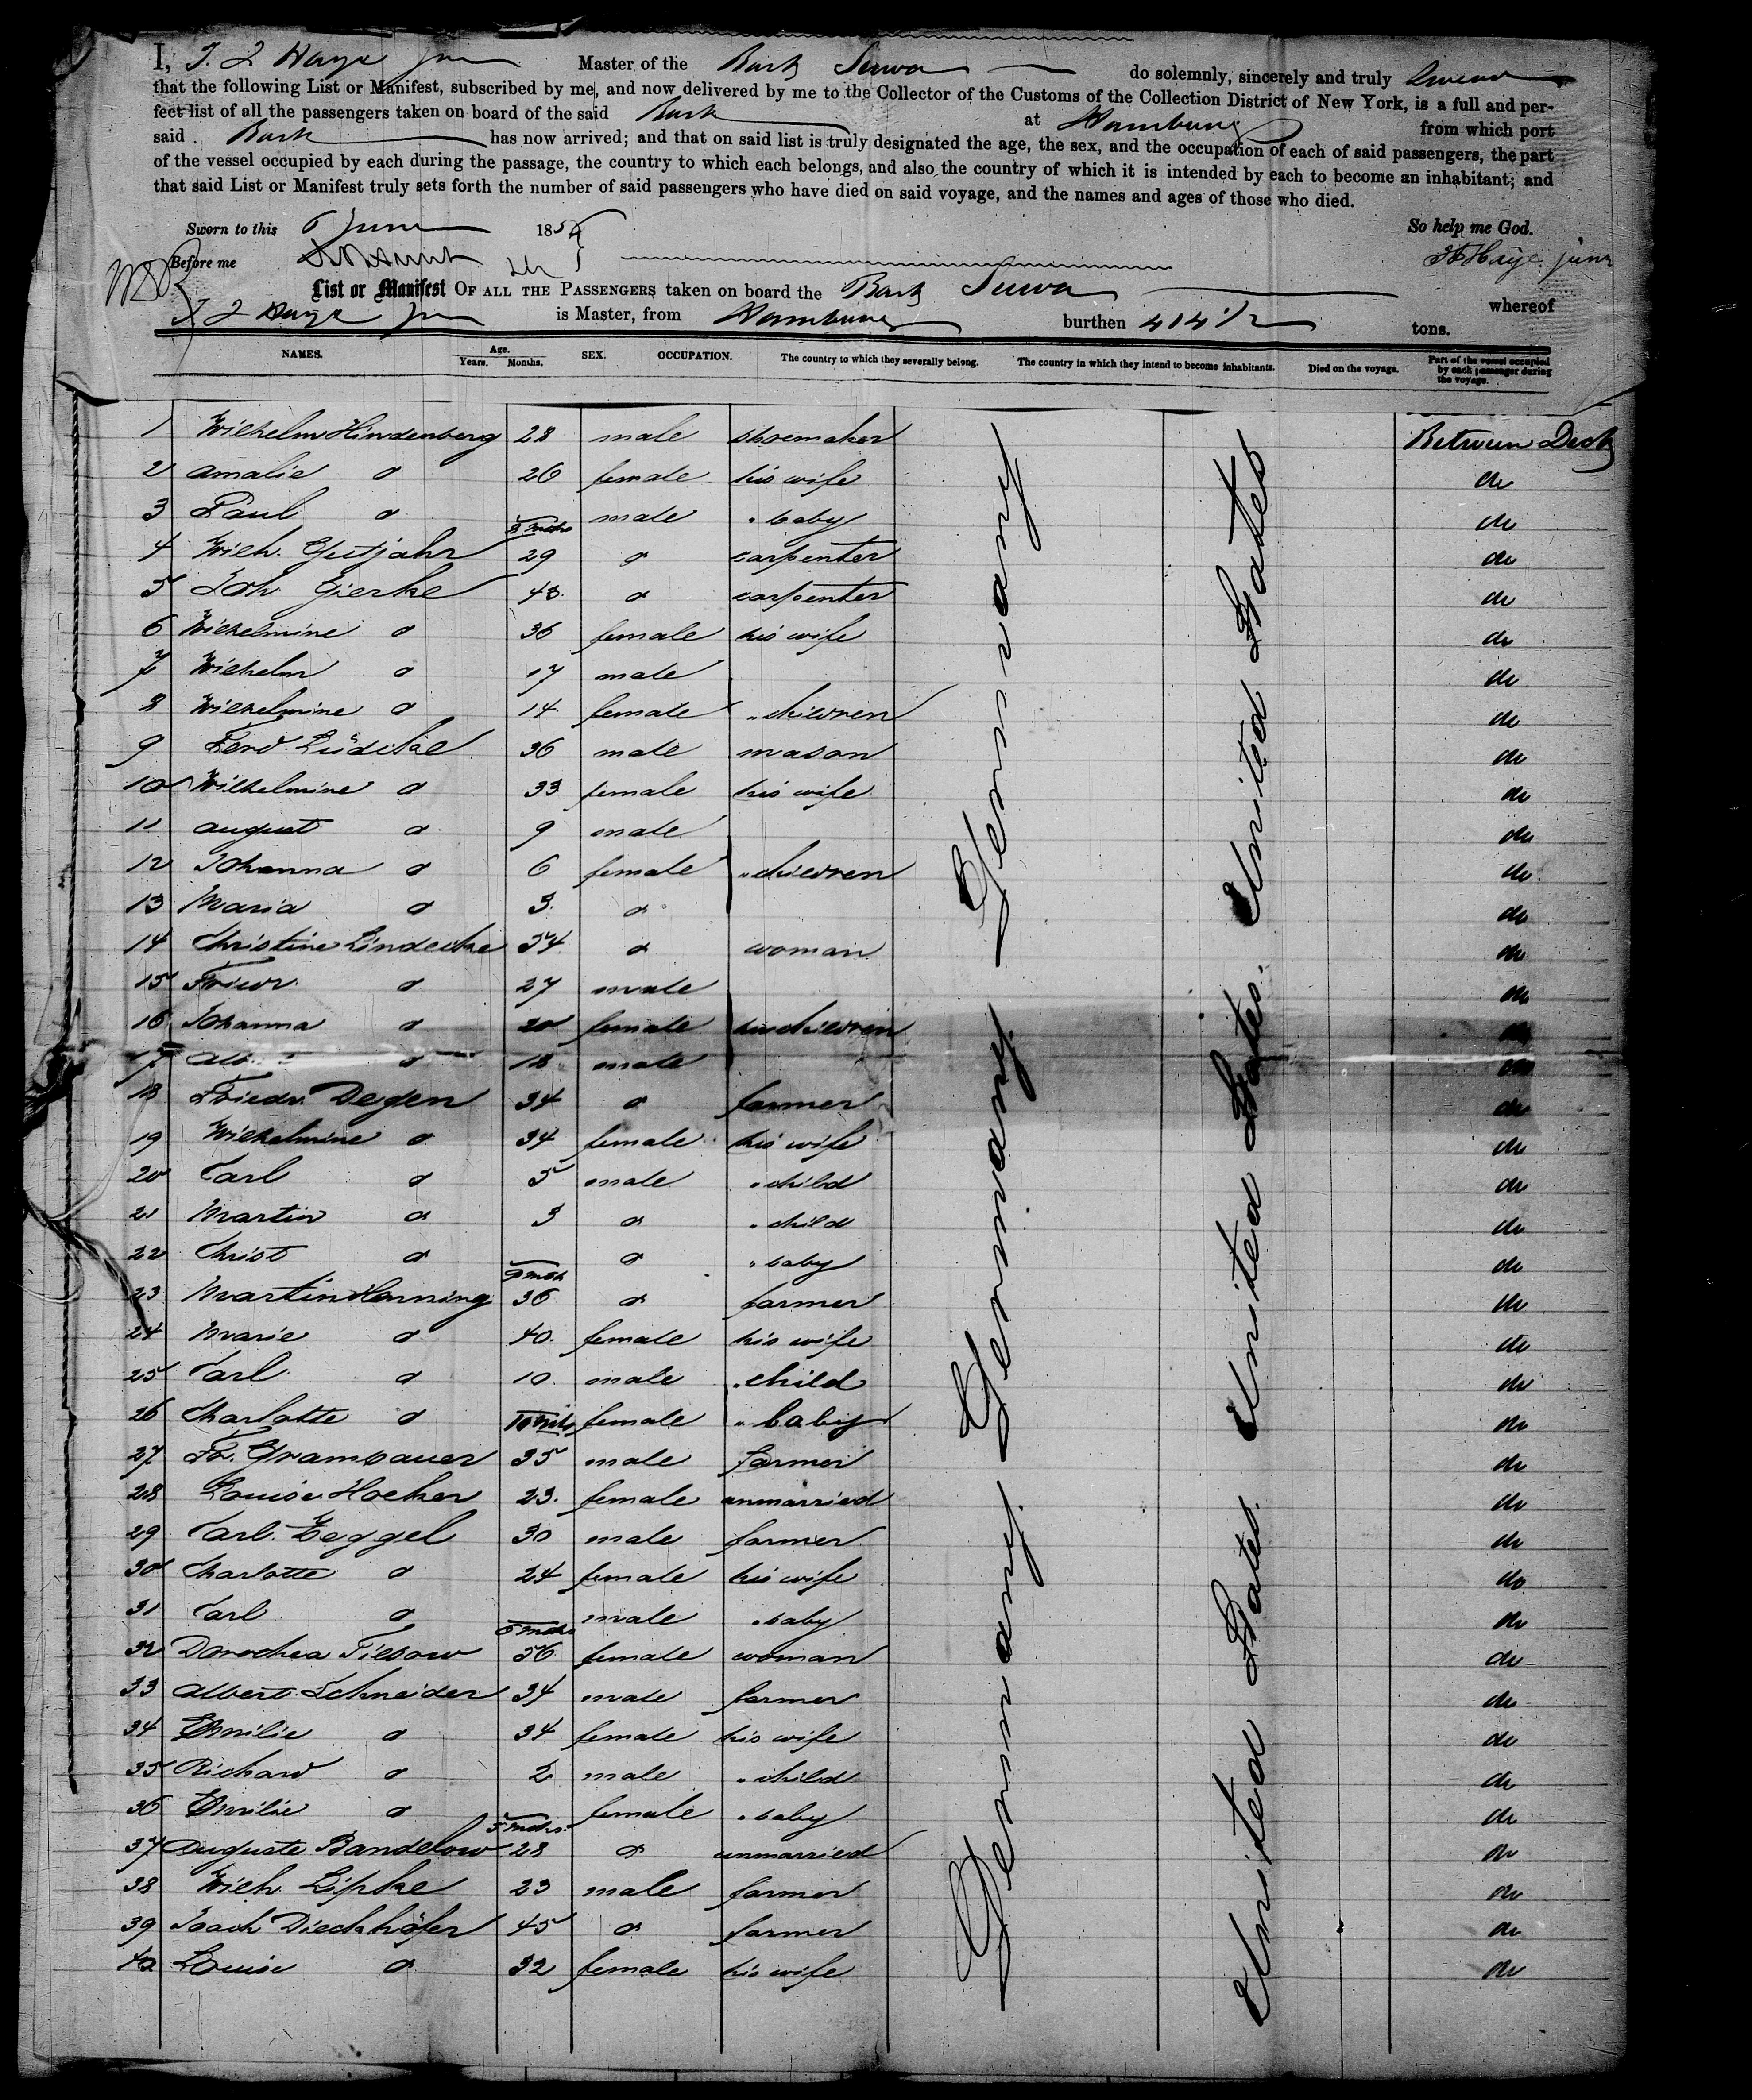 I, Master of the Bark do solemnly, sincerely and truly
that the following List or Manifest, subscribed by me, and now delivered by me to the Collector of the Customs of the Collection District of New York, is a full and per-
fect list of all the passengers taken on board of the said Bark at Hamburg from which port
said Bark has now arrived; and that on said list is truly designated the age, the sex, and the occupation of each of said passengers, the part
of the vessel occupied by each during the passage, the country to which each belongs, and also the country of which it is intended by each to become an inhabitant; and
that said List or Manifest truly sets forth the number of said passengers who have died on said voyage, and the names and ages of those who died.
Sworn to this 6 June 185 So help me God.
Before me
List or Manifest OF ALL THE PASSENGERS taken on board the Bark whereof
is Master, from Hamburg burthen 414 1/2 tons.
NAMES. Age. Years. Months. SEX. OCCUPATION. The country to which they severally belong. The country in which they intend to become inhabitants. Died on the voyage. Part of the vessel occupied by each passenger during the voyage.
1 Wilhelm Hindenberg 28 male shoemaker Germany United States Between Deck
2 Amalie do 26 female his wife do
3 Paul do male " baby do
4 Wilh. Gutjahr 29 do carpenter do
5 Joh Gierke 43 do carpenter do
6 Wilhelmine do 36 female his wife do
7 Wilhelm do 17 male do
8 Wilhelmine do 14 female " children do
9 Ferd. Lüdicke 36 male mason do
10 Wilhelmine do 33 female his wife do
11 August do 9 male do
12 Johanna do 6 female " children do
13 Maria do 3 do do
14 Christine Lindecke 54 do woman do
15 Friedr do 27 male do
16 Johanna do 20 female her children do
17 do 18 male do
18 Friedr. Degen 34 do farmer Germany United States do
19 Wilhelmine do 34 female his wife do
20 Carl do 5 male " child do
21 Martin do 3 do " child do
22 Christ do 9 mth do " baby do
23 Martin Henning 36 do farmer do
24 Marie do 40 female his wife do
25 Carl do 10 male " child do
26 Charlotte do 10 mth female " baby do
27 Fr. Grambauer 35 male farmer do
28 Louise Hocker 23 female unmarried do
29 Carl Teggel 30 male farmer Germany United States do
30 Charlotte do 24 female his wife do
31 Carl do male " baby do
32 Dorothea Tiesow 56 female woman do
33 Albert Schneider 34 male farmer do
34 Emilie do 34 female his wife do
35 Richard do 2 male " child do
36 Emilie do 5 mths female " baby do
37 Auguste Bandelow 28 do unmarried do
38 Wilh. Lipske 23 male farmer do
39 Joach Dieckhöfer 45 do farmer do
40 Louise do 32 female his wife do